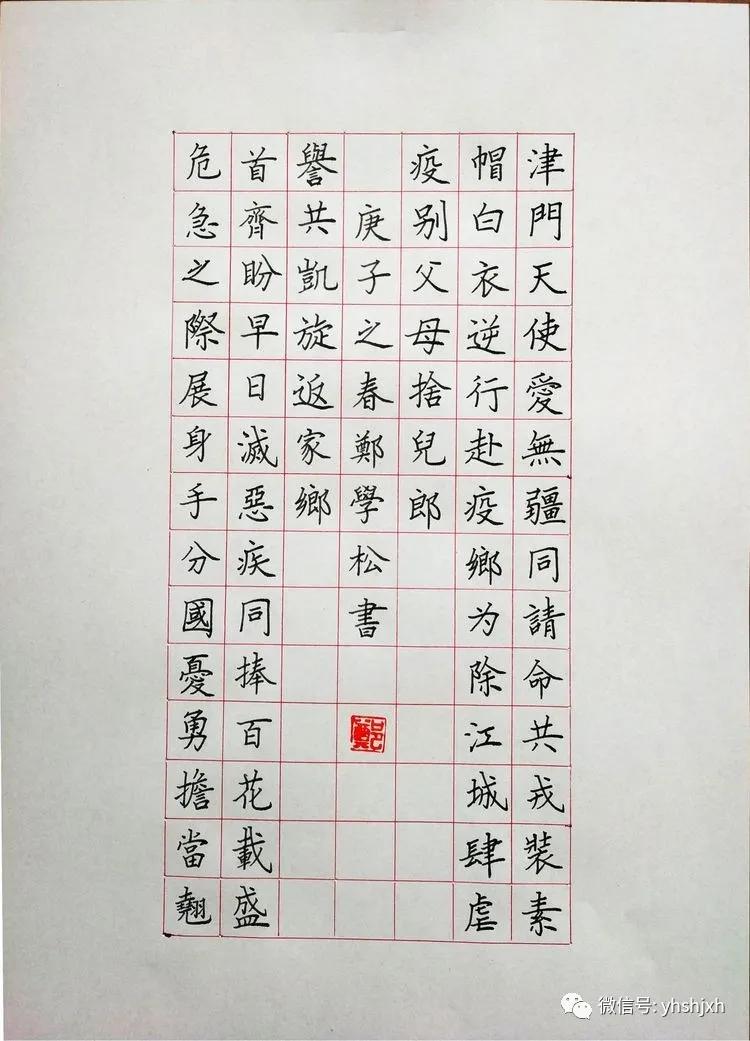 津門天使愛無疆同請命共戎裝素
帽白衣逆行赴疫鄉为除江城肆虐
疫别父母捨兒郎
危急之際展身手分國憂勇擔當翹
首齊盼早日滅惡疾同捧百花載盛
譽共凱旋返家鄉
庚子之春鄭學松書
微信号: yhshjxh